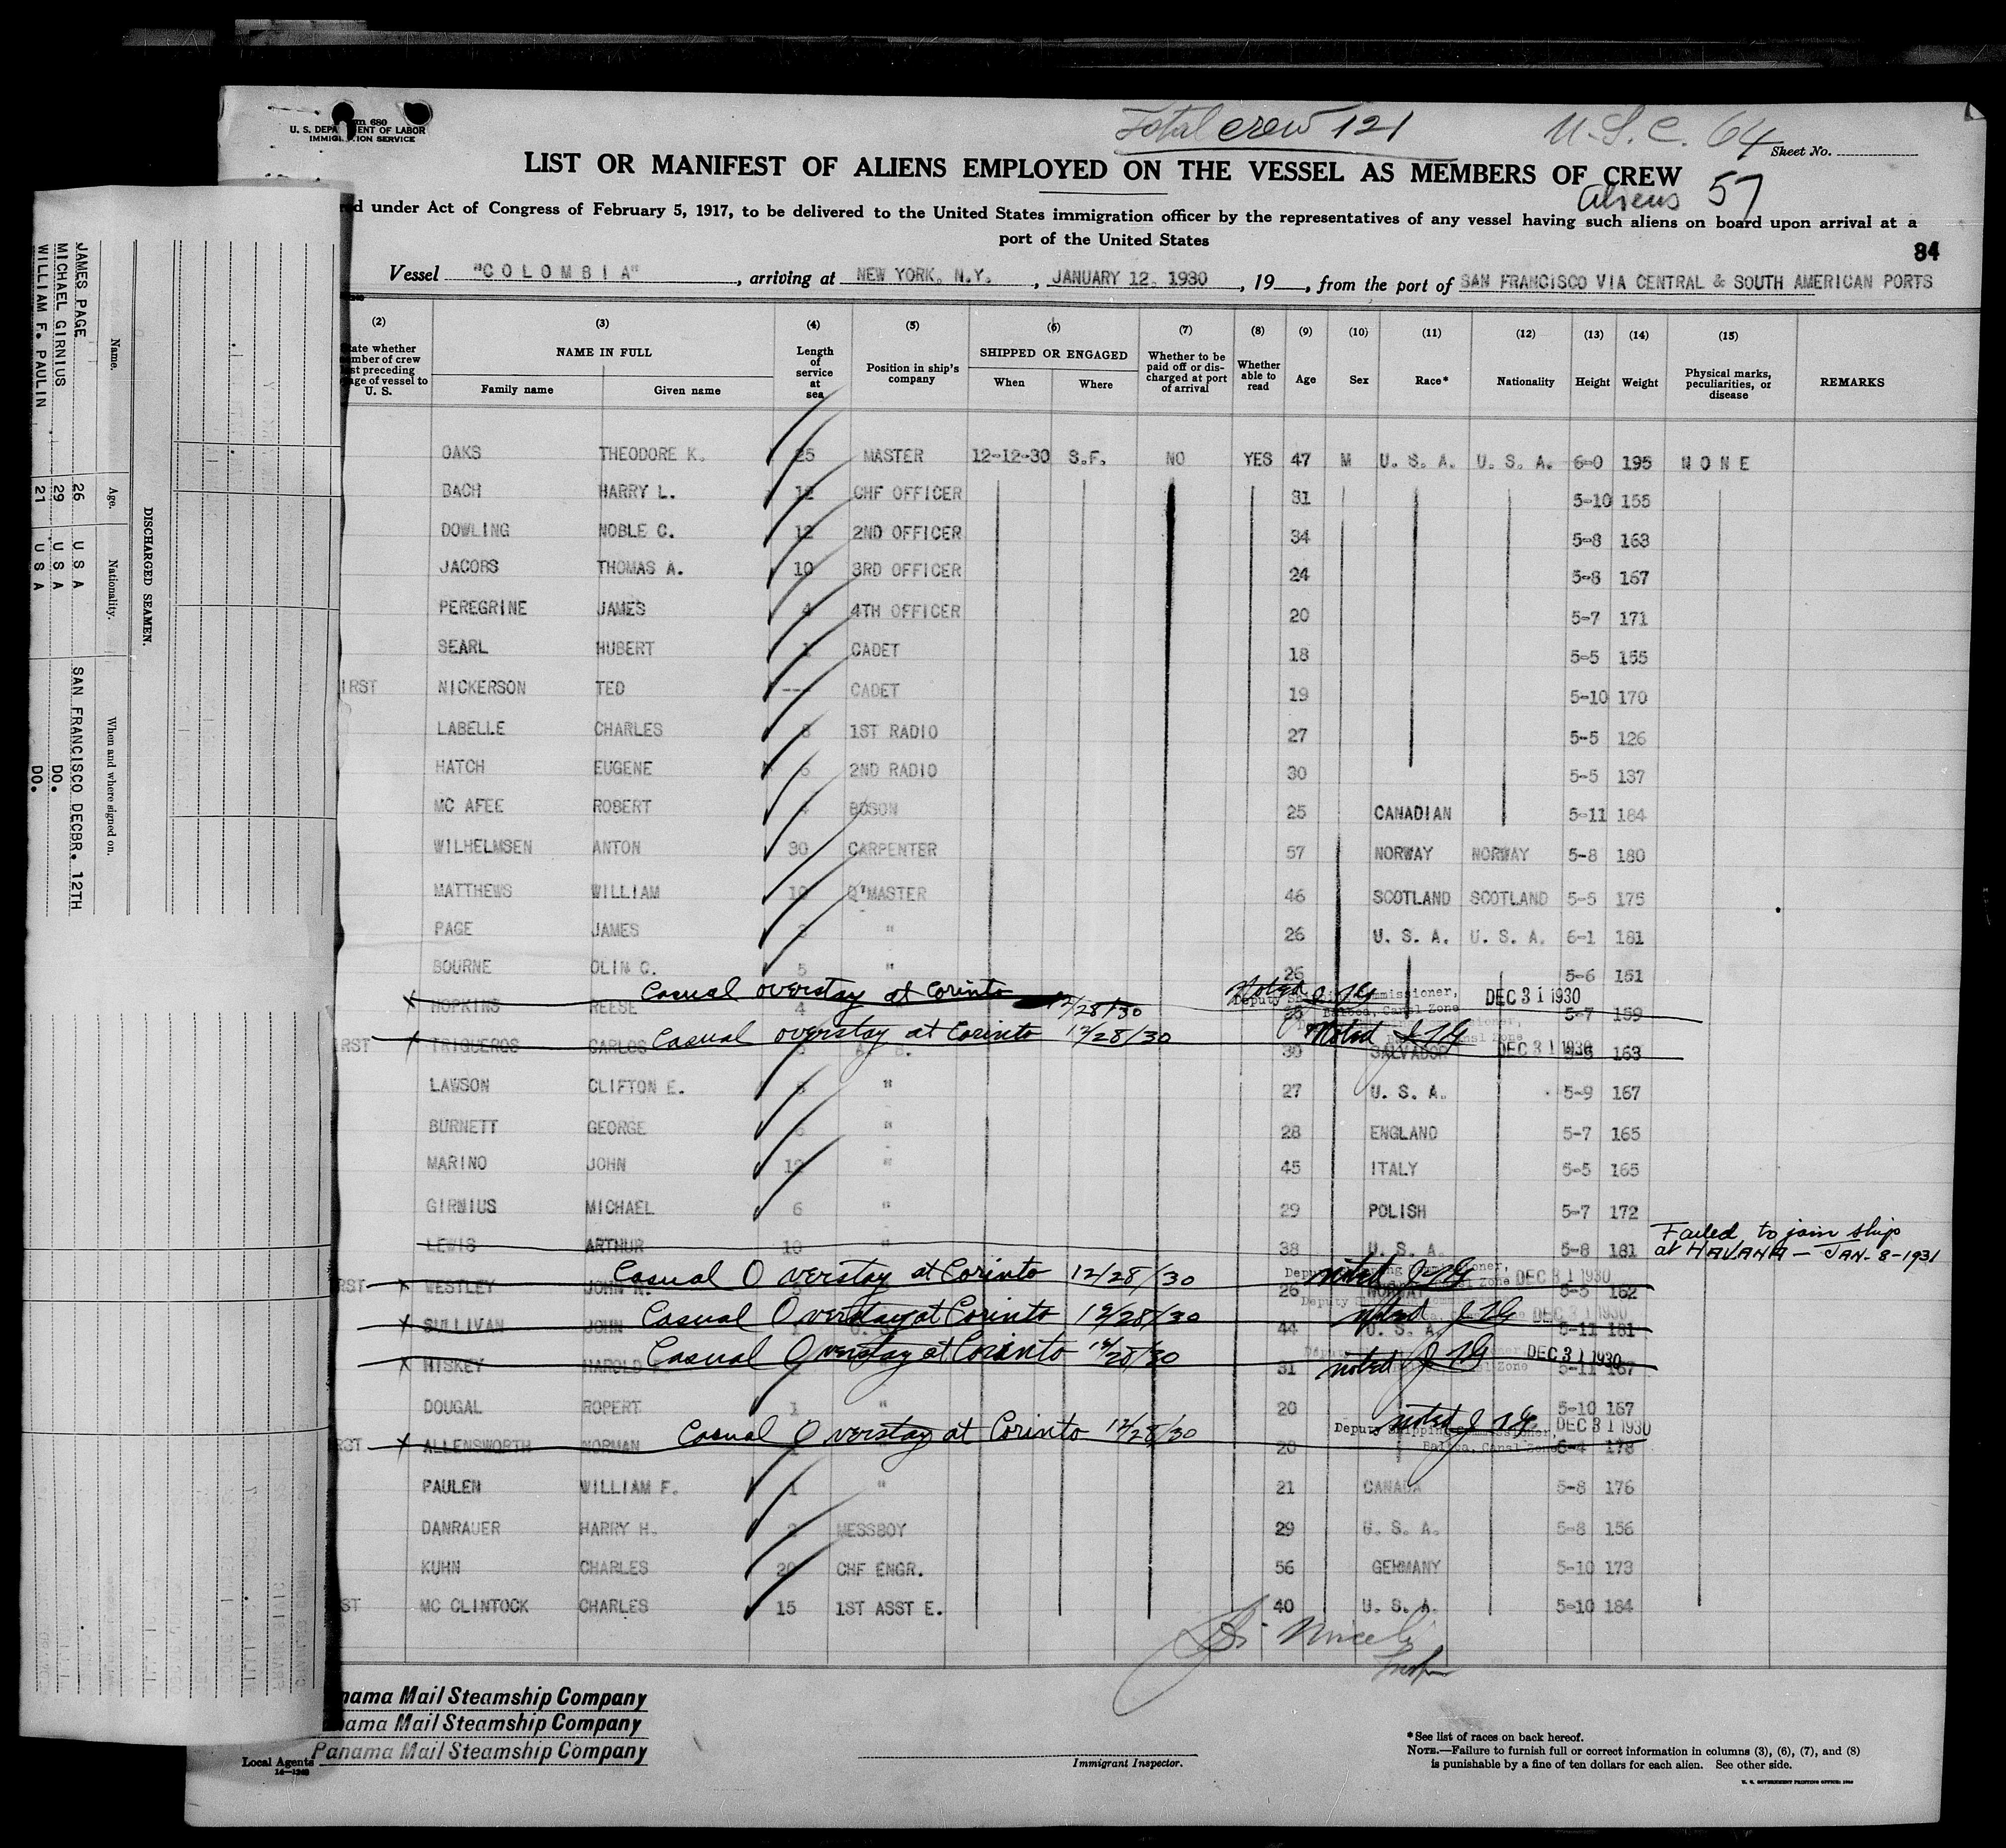 Total crew 121
U.S.C. 64
680
U. S. DEPA ENT OF LABOR
IMMIG ION SERVICE
Sheet No.
LIST OR MANIFEST OF ALIENS EMPLOYED ON THE VESSEL AS MEMBERS OF CREW
Aliens 57
ed under Act of Congress of February 5, 1917, to be delivered to the United States immigration officer by the representatives of any vessel having such aliens on board upon arrival at a
port of the United States
84
Vessel "COLOMBIA", arriving at NEW YORK, N.Y., JANUARY 12, 1930, 19 , from the port of SAN FRANCISCO VIA CENTRAL & SOUTH AMERICAN PORTS
(2) (3) (4) (5) (6) (7) (8) (9) (10) (11) (12) (13) (14) (15)
ate whether mber of crew st preceding age of vessel to U. S.
NAME IN FULL
Family name Given name
Length of service at sea
Position in ship's company
SHIPPED OR ENGAGED
When Where
Whether to be paid off or discharged at port of arrival
Whether able to read
Age Sex Race* Nationality Height Weight
Physical marks, peculiarities, or disease
REMARKS
OAKS THEODORE K. 25 MASTER 12-12-30 S.F. NO YES 47 M U. S. A. U. S. A. 6-0 195 NONE
BACH HARRY L. 12 CHF OFFICER 31 5-10 155
DOWLING NOBLE C. 12 2ND OFFICER 34 5-8 163
JACOBS THOMAS A. 10 3RD OFFICER 24 5-8 167
PEREGRINE JAMES 4 4TH OFFICER 20 5-7 171
SEARL HUBERT 1 CADET 18 5-5 155
IRST NICKERSON TED --- CADET 19 5-10 170
LABELLE CHARLES 8 1ST RADIO 27 5-5 126
HATCH EUGENE 5 2ND RADIO 30 5-5 137
MC AFEE ROBERT 4 BOSON 25 CANADIAN 5-11 184
WILHELMSEN ANTON 30 CARPENTER 57 NORWAY NORWAY 5-8 180
MATTHEWS WILLIAM 10 Q'MASTER 46 SCOTLAND SCOTLAND 5-5 175
PAGE JAMES " 26 U. S. A. U. S. A. 6-1 181
BOURNE OLIN C. 5 " 26 5-6 151
Casual overstay at Corinto 12/28/30 Noted
Deputy Shipping Commissioner, DEC 31 1930
Balboa, Canal Zone
X HOPKINS REESE 4 5-7 159
Casual overstay at Corinto 12/28/30 Noted
IRST X TRIQUEROS CARLOS 30 SALVADOR DEC 31 1930 163
LAWSON CLIFTON E. " 27 U. S. A. 5-9 167
BURNETT GEORGE " 28 ENGLAND 5-7 165
MARINO JOHN 12 " 45 ITALY 5-5 165
GIRNIUS MICHAEL 6 " 29 POLISH 5-7 172
LEWIS ARTHUR 10 " 38 U. S. A. 5-8 181 Failed to join ship
at HAVANA - JAN-8-1931
Casual Overstay at Corinto 12/28/30 noted DEC 31 1930
RST X WESTLEY JOHN N. 26 NORWAY 5-5 162
Casual Overstay at Corinto 12/28/30 noted DEC 31 1930
X SULLIVAN JOHN 1 44 U. S. A. 5-11 181
Casual Overstay at Corinto 12/28/30 noted DEC 31 1930
X HISKEY HAROLD 31 5-11 167
DOUGAL ROPERT 1 " 20 5-10 167
Casual Overstay at Corinto 12/28/30 noted
Deputy Shipping Commissioner, DEC 31 1930
Balboa, Canal Zone
RST X ALLENSWORTH NORMAN 20 6-4 178
PAULEN WILLIAM F. 1 " 21 CANADA 5-8 176
DANRAUER HARRY H. 2 MESSBOY 29 U. S. A. 5-8 156
KUHN CHARLES 20 CHF ENGR. 56 GERMANY 5-10 173
ST MC CLINTOCK CHARLES 15 1ST ASST E. 40 U. S. A. 5-10 184
nama Mail Steamship Company
nama Mail Steamship Company
Panama Mail Steamship Company
Local Agents
Immigrant Inspector.
*See list of races on back hereof.
NOTE.—Failure to furnish full or correct information in columns (3), (6), (7), and (8)
is punishable by a fine of ten dollars for each alien. See other side.
U. S. GOVERNMENT PRINTING OFFICE: 1930
DISCHARGED SEAMEN.
Name. Age. Nationality. When and where signed on.
JAMES PAGE 26 U S A SAN FRANCISCO DECBR. 12TH
MICHAEL GIRNIUS 29 U S A DO.
WILLIAM F. PAULIN 21 U S A DO.